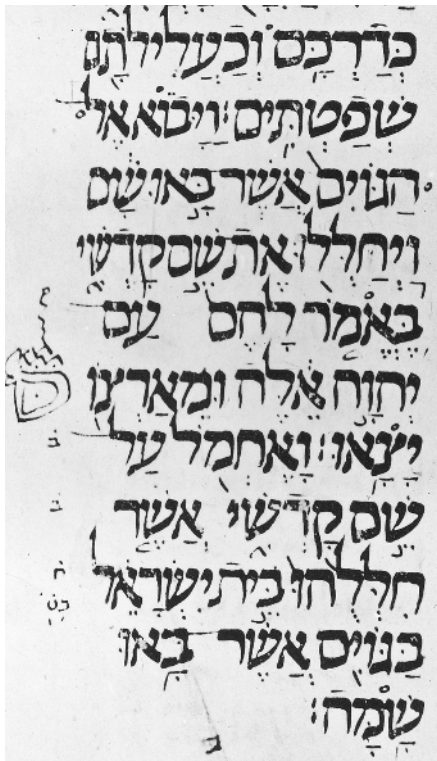 כְּדַרְכָּם וְכַעֲלִילֹתָם
שְׁפַטְתִּים׃ וַיָּבוֹא אֶל
הַגּוֹיִם אֲשֶׁר בָּאוּ שָׁם
וַיְחַלְּלוּ אֶת שֵׁם קָדְשִׁי
בֶּאֱמֹר לָהֶם עַם
יְהוָה אֵלֶּה וּמֵאַרְצוֹ
יָצָאוּ׃ וָאֶחְמֹל עַל
שֵׁם קָדְשִׁי אֲשֶׁר
חִלְּלֻהוּ בֵּית יִשְׂרָאֵל
בַּגּוֹיִם אֲשֶׁר בָּאוּ
שָׁמָּה׃